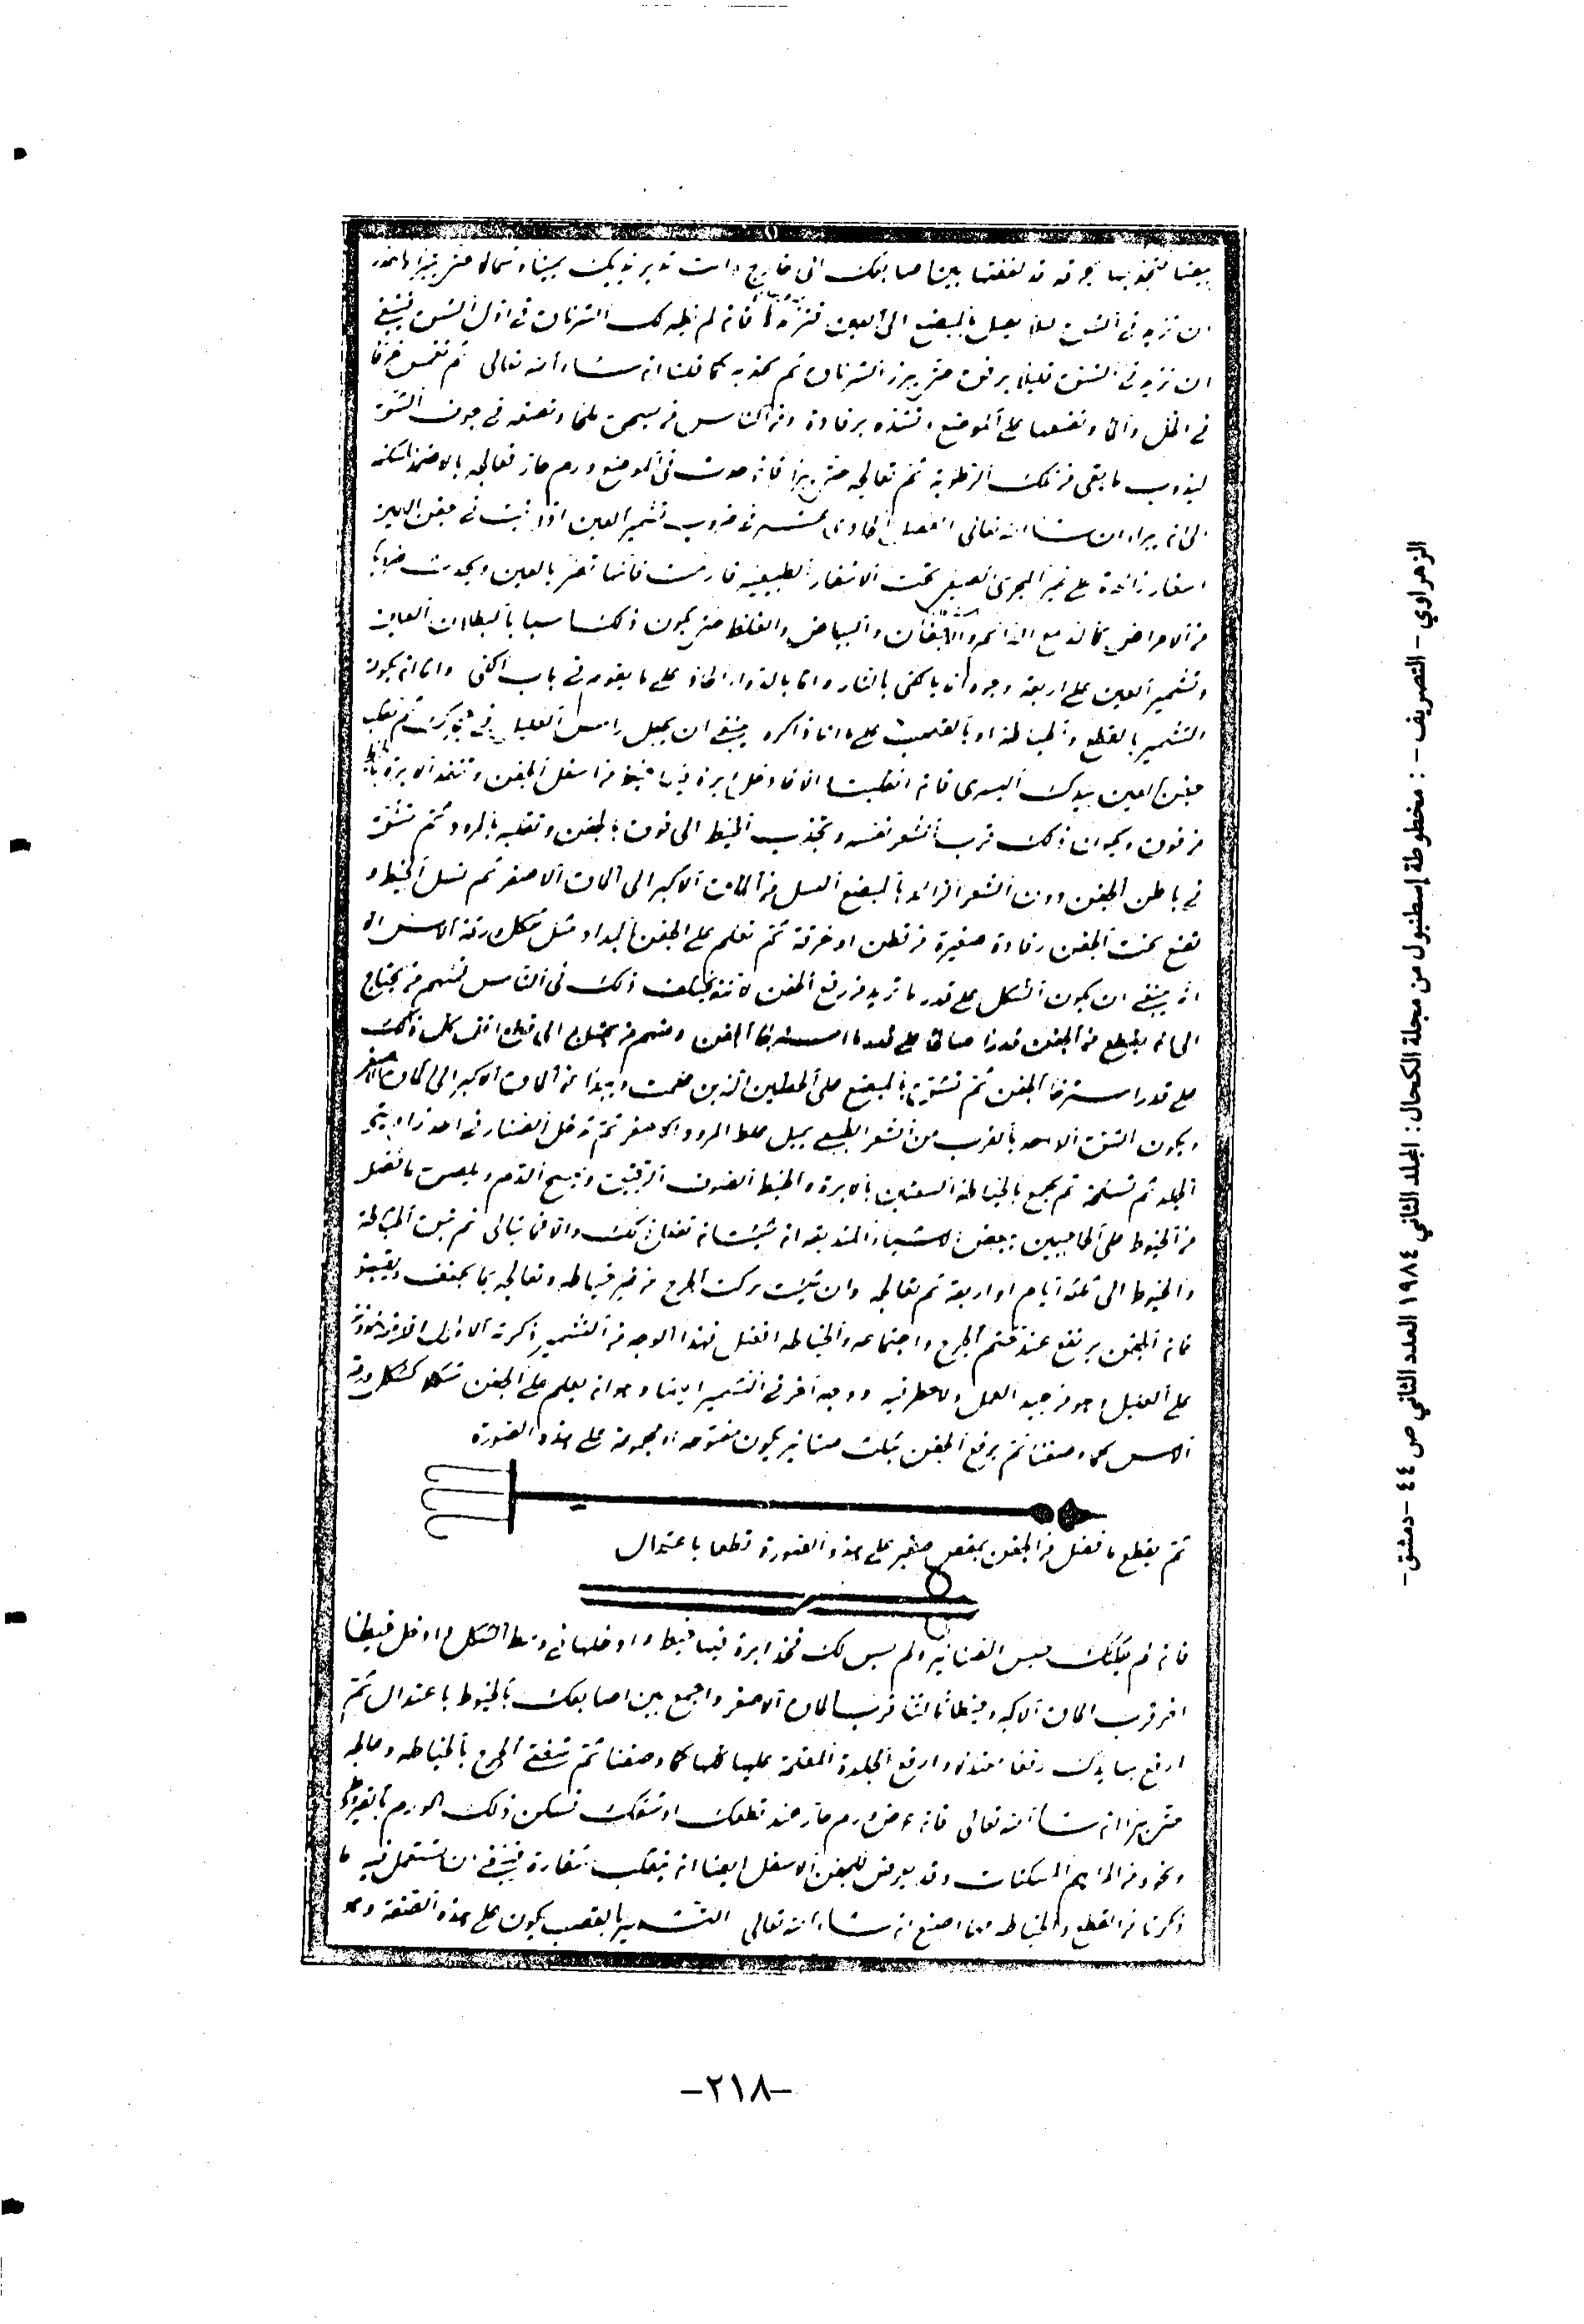 بيضا فتجذبها بخرقة قد لففتها بين اصابعك الى خارج وانت تدير يديك يمينا وشمالا حتى تبرز واحذر
ان تزيد في الشق لئلا يصل بالمبضع الى العين فان لم يظهر لك الشرناق في اول الشق فينبغي
ان تزيد في الشق قليلا برفق حتى يبرز الشرناق ثم تجذبه كما قلنا ان شاء الله تعالى ثم تغمس خرقا
في الخل والماء وتضعها على الموضع وتشده برفادة ومن الناس من يسحق ملحا وتضعه في جوف الشق
ليذوب ما بقي من تلك الرطوبة ثم تعالجه حتى يبرأ فان حدث في الموضع ورم حار فعالجه بالاضمدة المسكنة
الى ان يبرا ان شاء الله تعالى الفصل الحادي عشر في ضروب تشمير العين اذا نبت في جفن العين
اشفار زائدة على غير المجرى الطبيعي تحت الاشفار الطبيعية فانها تضر بالعين ويحدث ضروبا
من الامراض كالدمع الدائم واسترخاء الاجفان والبياض والغلظ حتى يكون ذلك سببا لبطلان العين
وتشمير العين على اربعة وجوه اما بالكي بالنار واما بالدواء الحاد على ما تقدم في باب الكي واما ان يكون
التشمير بالقطع والخياطة او بالقصب على ما انا ذاكره ينبغي ان يجعل راس العليل في حجرك ثم تقلب
جفن العين بيدك اليسرى فان انقلبت والا فادخل ابرة فيها خيط من اسفل الجفن وتنفذ الابرة بالخيط
من فوق ويكون ذلك قرب الشعر نفسه وتجذب الخيط الى فوق بالجفن وتقلبه بالمرود ثم تشق
في باطن الجفن دون الشعر الزائد بالمبضع النشل من الماق الاكبر الى الماق الاصغر ثم تسل الخيط و
تضع تحت الجفن رفادة صغيرة من قطن او خرقة ثم تعلم على الجفن بالمداد مثل شكل ورقة الاس الا
انه ينبغي ان يكون الشكل على قدر ما تريد من رفع الجفن لانه يختلف ذلك في الناس فمنهم من يحتاج
الى ان يقطع من الجفن قدرا صالحا على قدر ما استرخا الجفن ومنهم من يحتاج الى قطع اقل كل ذلك
على قدر استرخا الجفن ثم تشق بالمبضع على الخطين الذين علمت وتبدا من الماق الاكبر الى الماق الاصغر
ويكون الشق الواحد بالقرب من الشعر الطبيعي مثل غلظ المرود ثم تدخل الصنارة في احد زاويتي
الجلد ثم تسلخه ثم تجمع بالخياطة الشفتين بابرة والخيط الصوف الرقيق وتمسح الدم وتلصق ما فضل
من الخيوط على الحاجبين ببعض الاشياء المتدبقة ان شئت ان تفعل ذلك والا فما تبالي ثم تترك الخياطة
والخيوط الى ثلثة ايام او اربعة ثم تعالجه وان شئت تركت الجرح من غير خياطه وتعالجه بما يجفف ويقبض
فان الجفن يرتفع عند ختم الجرح واجتماعه والخياطه افضل فهذا الوجه من التشمير ذكرته الاوائل الا ان فيه مؤونة
على العليل وهو من جيد العمل ولا خطر فيه ووجه آخر في التشمير ايضا وهو ان يعلم على الجفن شكلا كشكل ورقة
الاس كما وصفنا ثم يرفع الجفن بثلث صنانير يكون مفتوحة او مجموعة على هذه الصورة
ثم يقطع ما فضل من الجفن بمقص صغير على هذه الصورة قطعا باعتدال
فان لم يمكنك حبس الصنانير ولم يسر لك فخذ ابرة فيها خيط وادخلها في وسط الشكل وادخل خيطا
اخر قرب الماق الاكبر وخيطا ثالثا قرب الماق الاصغر واجمع بين اصابعك بالخيوط باعتدال ثم
ارفع بها يدك رفعا معتدلا وارفع الجلدة المعلمة عليها كلها كما وصفنا ثم تجمع شفتي الجرح بالخياطه وعالجه
حتى يبرا ان شا الله تعالى فان عرض ورم حار عند قطعك او شقك فسكن ذلك الورم بالقيروطي
ونحوه من المراهم المسكنات وقد يعرض للجفن الاسفل ايضا ان تنقلب اشفاره فينبغي ان تستعمل فيه ما
ذكرنا من القطع والخياطه ان شاء الله تعالى التشمير بالقصب يكون على هذه الصفة وهو
-٢١٨-
الزهراوي - التصريف - : مخطوطة إسطنبول من مجلة الكحال: المجلد الثاني ١٩٨٤ العدد الثاني ص ٤٤ -دمشق-